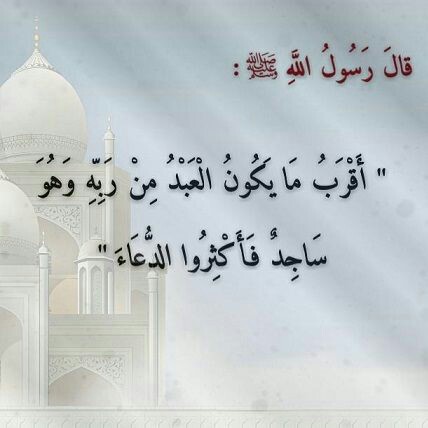 قَالَ رَسُولُ اللَّهِ ﷺ :
" أَقْرَبُ مَا يَكُونُ الْعَبْدُ مِنْ رَبِّهِ وَهُوَ
سَاجِدٌ فَأَكْثِرُوا الدُّعَاءَ "